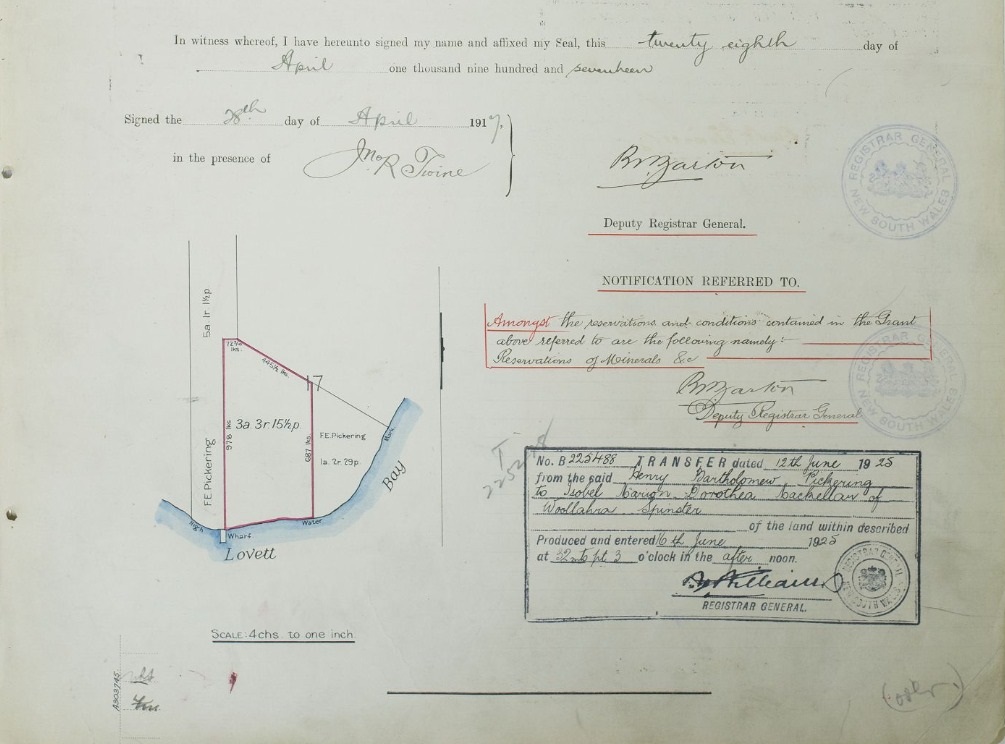 In witness whereof, I have hereunto signed my name and affixed my Seal, this twenty eighth day of
April one thousand nine hundred and seventeen
Signed the 28th day of April 1917,
in the presence of Jno R Twine
B Barton
Deputy Registrar General.
REGISTRAR GENERAL
NEW SOUTH WALES
NOTIFICATION REFERRED TO.
Amongst the reservations and conditions contained in the Grant
above referred to are the following namely:-
Reservations of Minerals &c
B Barton
Deputy Registrar General
NEW SOUTH WALES
5a 1r 1½p
17
978 lks.
687 lks.
3a 3r 15½p
F.E. Pickering
F.E. Pickering
1a. 2r. 29p.
High
Water
Mark
Wharf
Lovett
Bay
SCALE: 4chs. to one inch
No. B 225488 TRANSFER dated 12th June 1925
from the said Henry Bartholomew Pickering
to Isobel Marion Dorothea Mackellar of
Woollahra Spinster
of the land within described
Produced and entered 16th June 1925
at 32 mts pt 3 o'clock in the after noon.
Williams
REGISTRAR GENERAL.